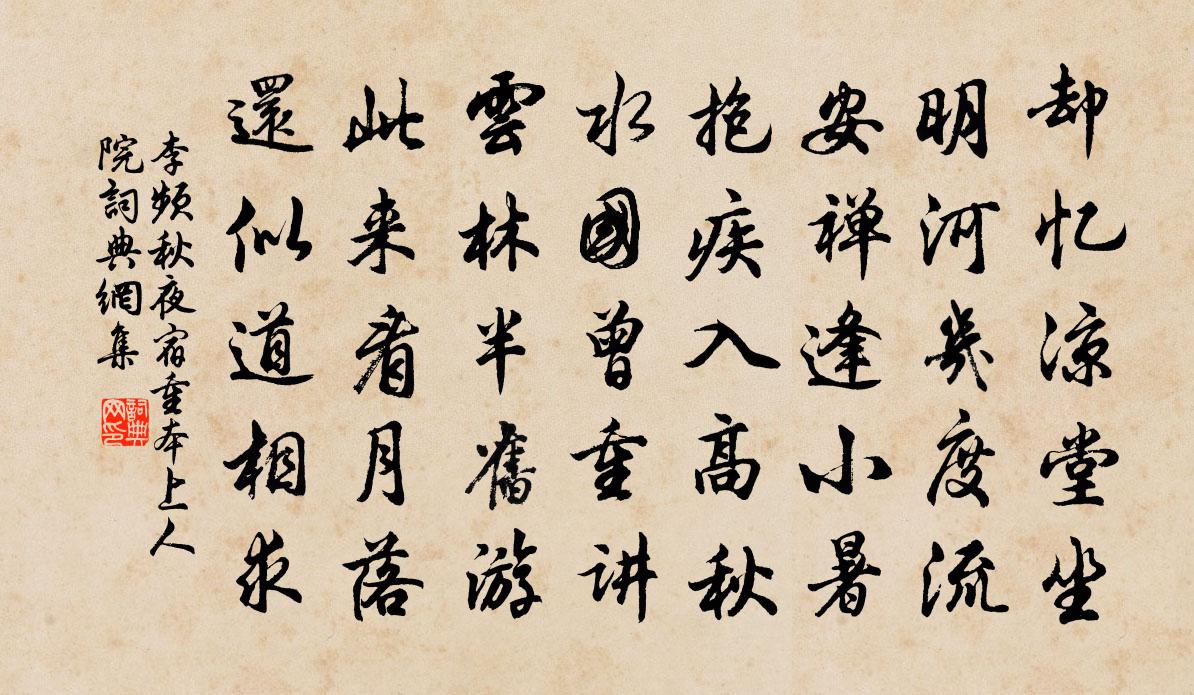 却忆凉堂坐
明河幾度流
安禅逢小暑
抱疾入高秋
水國曾重讲
雲林半舊游
此来看月落
還似道相求
李频秋夜宿重本上人
院詞典網集
詞典网印